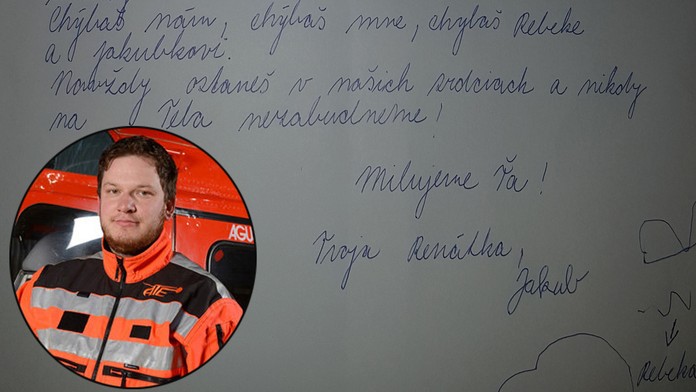 Chýbaš nám, chýbaš mne, chýbaš Rebeke
a Jakubkovi.
Navždy ostaneš v našich srdciach a nikdy
na Teba nezabudneme!
Milujeme Ťa!
Tvoja Renátka,
Jakub
Rebeka
AGU
ATE